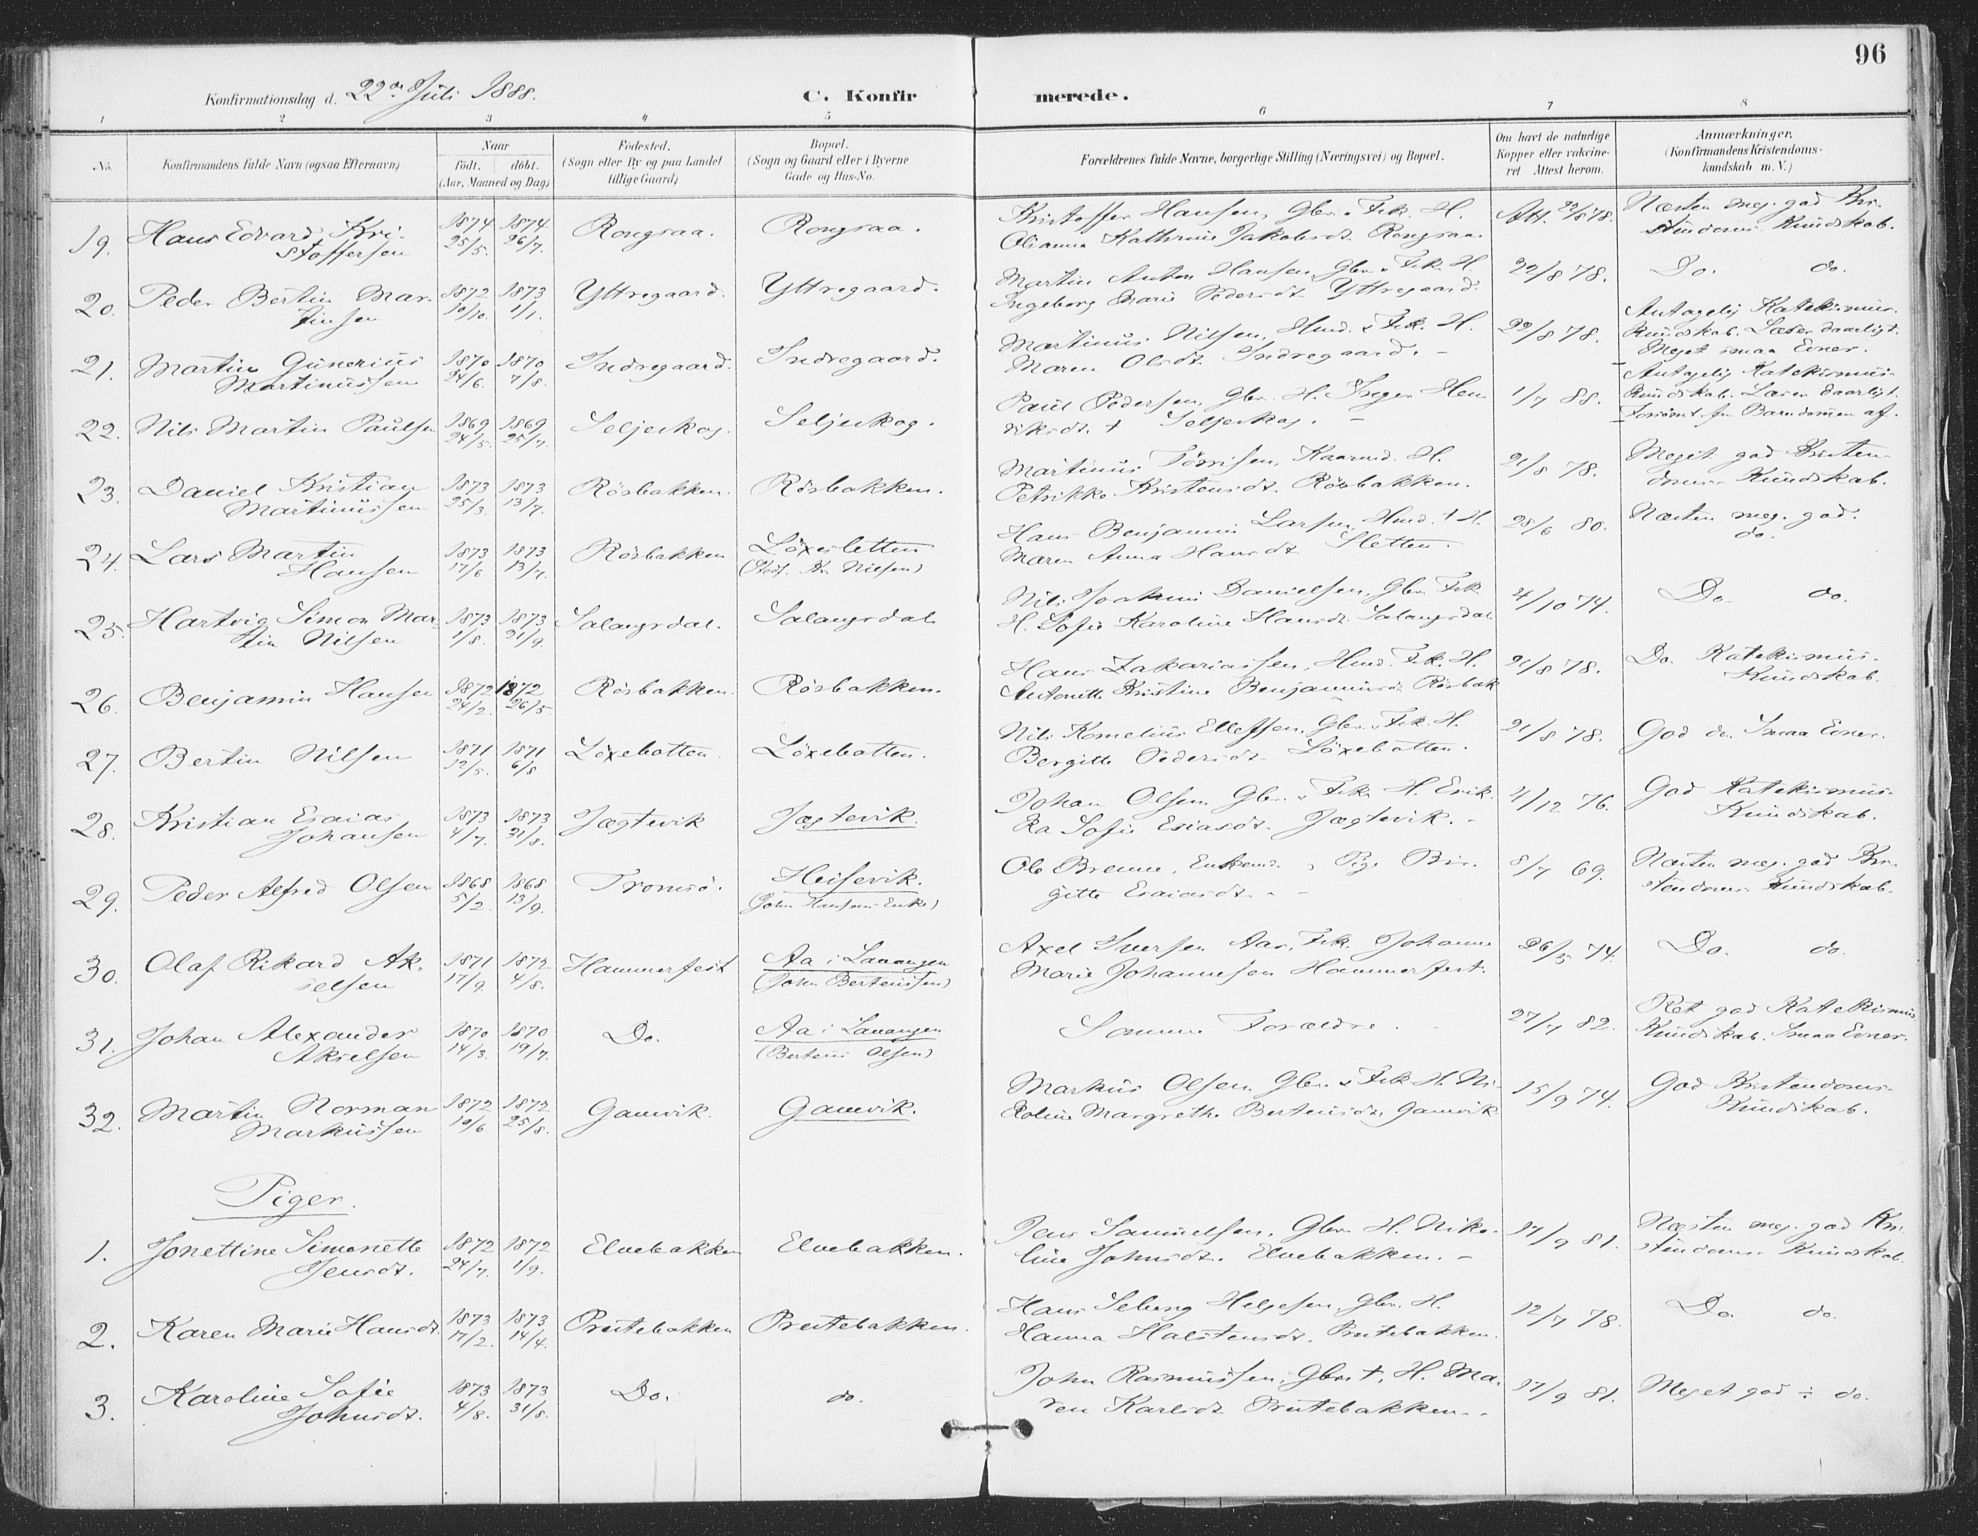 96
Konfirmationsdag d. 22de Juli 1888.
C. Konfirmerede.
1 2 3 4 5 6 7 8
No.
Konfirmandens fulde Navn (ogsaa Efternavn)
Naar
født. døbt.
(Aar, Maaned og Dag)
Fødested.
(Sogn eller By og paa Landet
tillige Gaard)
Bopæl.
(Sogn og Gaard eller i Byerne
Gade og Hus-No.
Forældrenes fulde Navne, borgerlige Stilling (Næringsvei) og Bopæl.
Om havt de naturlige
Kopper eller vakcine-
ret Attest herom.
Anmærkninger.
(Konfirmandens Kristendoms-
kundskab m.V.)
19. Hans Edvard Kri- 1874 1874 Rongraa. Rongraa. Kristoffer Hansen, Gbr. & Fisk. H. Att. 22/8 78. Næsten meg. god Kri-
stoffersen 25/5. 26/7. Olianna Kathrine Jakobsdt. Rongraa. stendoms Kundskab.
20. Peder Bertin Mar- 1872 1873 Yttregaard. Yttregaard. Martin Anton Hansen, Gbr. & Fisk. H. 22/8 78. Do. do.
tinsen 10/10. 1/1. Ingeborg Marie Pedersdt. Yttregaard.
21. Martin Gunerius 1870 1870 Indregaard. Indregaard. Martinus Nilsen, Hmd. & Fisk. H. 22/8 78. Antagelig Katekismus-
Martinussen 24/6. 7/8. Maren Olsdt. Indregaard. Kundskab. Læser daarligt.
Meget smaa Evner.
22. Nils Martin Paulsen 1869 1869 Seljeskog. Seljeskog. Paul Pedersen, Gbr. H. Inger Hen- 1/7 88. Antagelig Katekismus-
24/5. 25/7. riksdt. + Seljeskog. Kundskab. Læser daarligt.
Forsømt fra Barndommen af.
23. Daniel Kristian 1873 1873 Rösbakken. Rösbakken. Martinus Törrisen, Kaarmd. H. 21/8 78. Meget god Kristen-
Martinussen 25/3. 13/7. Petrikke Kristensdt. Rösbakken. doms Kundskab.
24. Lars Martin 1873 1873 Rösbakken Löxesletten Hans Benjamin Larsen, Hmd. + H. 28/6 80. Næsten meg. god.
Hansen 17/6 13/7. Nilsen) Maren Anna Hansdt. Sletten. do.
25. Hartvig Simon Mar- 1873 1873 Salangsdal. Salangsdal. Nils Joakim Danielsen, Gbr. Fisk. 4/10 74. Do. do.
tin Nilsen 1/8. 21/9. H. Sofie Karoline Hansdt. Salangsdal
26. Benjamin Hansen 1872 1872 Rösbakken. Rösbakken. Hans Zakariassen, Hmd. Fisk. H. 21/8 78. Do. Katekismus-
24/2. 26/5. Antonette Kristine Benjaminsdt. Rösbak Kundskab.
27. Bertin Nilsen 1871 1871 Löxebotten. Löxebotten. Nils Kornelius Ellefsen, Gbr. & Fisk. H. 21/8 78. God do. Smaa Evner.
12/5. 6/8 Bergitte Pedersdt. Löxebotten.
28. Kristian Esaias 1873 1873 Jægtevik Jægtevik. Johan Olsen Gbr. & Fisk. H. Erik- 4/12 76. God Katekismus-
Johansen 4/7. 31/8. ka Sofie Esiasdt. Jægtevik. Kundskab.
29. Peder Alfred Olsen 1868 1868 Tromsö. Heisevik. Ole Brenne, Enkemd. & Pige Bir- 8/7 69. Næsten meg. god Kri-
5/2. 13/9. (John Hansens Enke) gitte Esaiasdt. stendoms Kundskab.
30. Olaf Rikard Ak- 1871 1872 Hammerfest Aa i Lavangen Axel Iversen Aar, Fisk. Johanne 26/5 74. Do. do.
selsen 17/9. 4/8. (John Berteussen) Marie Johannesen Hammerfest.
31. Johan Alexander 1870 1870 Do. Aa i Lavangen Samme Forældre. 27/7 82. Ret god Katekismus
Akselsen 14/3. 19/7. (Berteus Olsen) Kundskab. Smaa Evner.
32. Martin Norman 1872 1872 Gamvik. Gamvik. Markus Olsen Gbr. & Fisk. H. Ni- 15/9 74. God Kristendoms-
Markussen 10/6 25/8. koline Margrethe Berteusdt. Gamvik Kundskab.
Piger.
1. Jonettine Simonette 1872 1872 Elvebakken Elvebakken. Jens Samuelsen, Gbr. H. Niko- 17/9 81. Næsten meg. god Kri-
Jensdt. 24/7. 1/9. line Johnsdt. Elvebakken. stendoms Kundskab
2. Karen Marie Hansdt. 1873 1873 Prestebakken Prestebakken. Hans Seberg Helgesen, Gbr. H. 12/7 78. Do. do.
17/2. 14/4. Hanna Halstensdt. Prestebakken.
3. Karoline Sofie 1873 1873 Do. do. John Rasmussen, Gbr. +. H. Ma- 17/9 81. Meget god do.
Johnsdt. 4/8. 31/8. ren Karlsdt. Prestebakken.